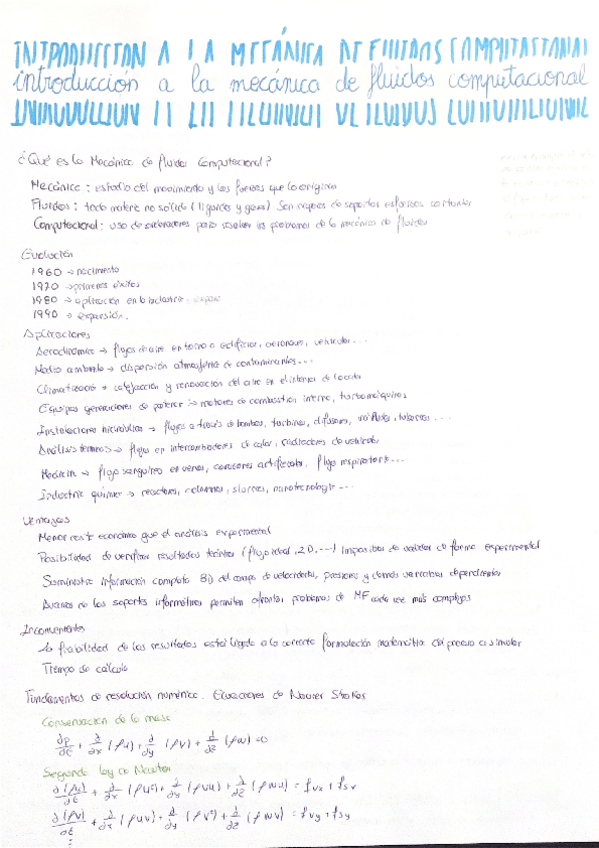 INTRODUCCION A LA MECÁNICA DE FLUIDOS COMPUTACIONAL
introducción a la mecánica de fluidos computacional
¿Qué es la Mecánica de fluidos Computacional?
Mecánica : estudio del movimiento y las fuerzas que lo originan
Fluidos : toda materia no sólida (líquidos y gases) Son capaces de soportar esfuerzos cortantes
Computacional : uso de ordenadores para resolver los problemas de la mecánica de fluidos
Evolución
1960 → nacimiento
1970 → primeros éxitos
1980 → aplicación en la industria
1990 → expansión.
Aplicaciones
Aerodinámica → flujos de aire en torno a edificios, aeronaves, vehículos...
Medio ambiente → dispersión atmosférica de contaminantes...
Climatización → calefacción y renovación del aire en el interior de locales
Equipos generadores de potencia → motores de combustión interna, turbomáquinas
Instalaciones hidráulicas → flujos a través de bombas, turbinas, difusores, válvulas, tuberías...
Análisis térmicos → flujos en intercambiadores de calor, radiadores de vehículos
Medicina → flujo sanguíneo en venas, corazones artificiales, flujo respiratorio...
Industria química → reactores, columnas, nanotecnología...
Ventajas
Menor coste económico que el análisis experimental
Posibilidad de verificar resultados teóricos (flujo ideal, 2D, ...) imposibles de validar de forma experimental
Suministra información completa 3D del campo de velocidades, presiones y demás variables dependientes
Avances de los soportes informáticos permiten afrontar problemas de MF cada vez más complejos
Inconvenientes
La fiabilidad de los resultados está ligada a la correcta formulación matemática del proceso a simular
Tiempo de cálculo
Fundamentos de resolución numérica. Ecuaciones de Navier Stokes
Conservación de la masa
∂ρ/∂t + ∂/∂x (ρu) + ∂/∂y (ρv) + ∂/∂z (ρw) = 0
Segunda ley de Newton
∂(ρu)/∂t + ∂/∂x (ρu²) + ∂/∂y (ρvu) + ∂/∂z (ρwu) = fvx + fsx
∂(ρv)/∂t + ∂/∂x (ρuv) + ∂/∂y (ρv²) + ∂/∂z (ρwv) = fvy + fsy
⋮